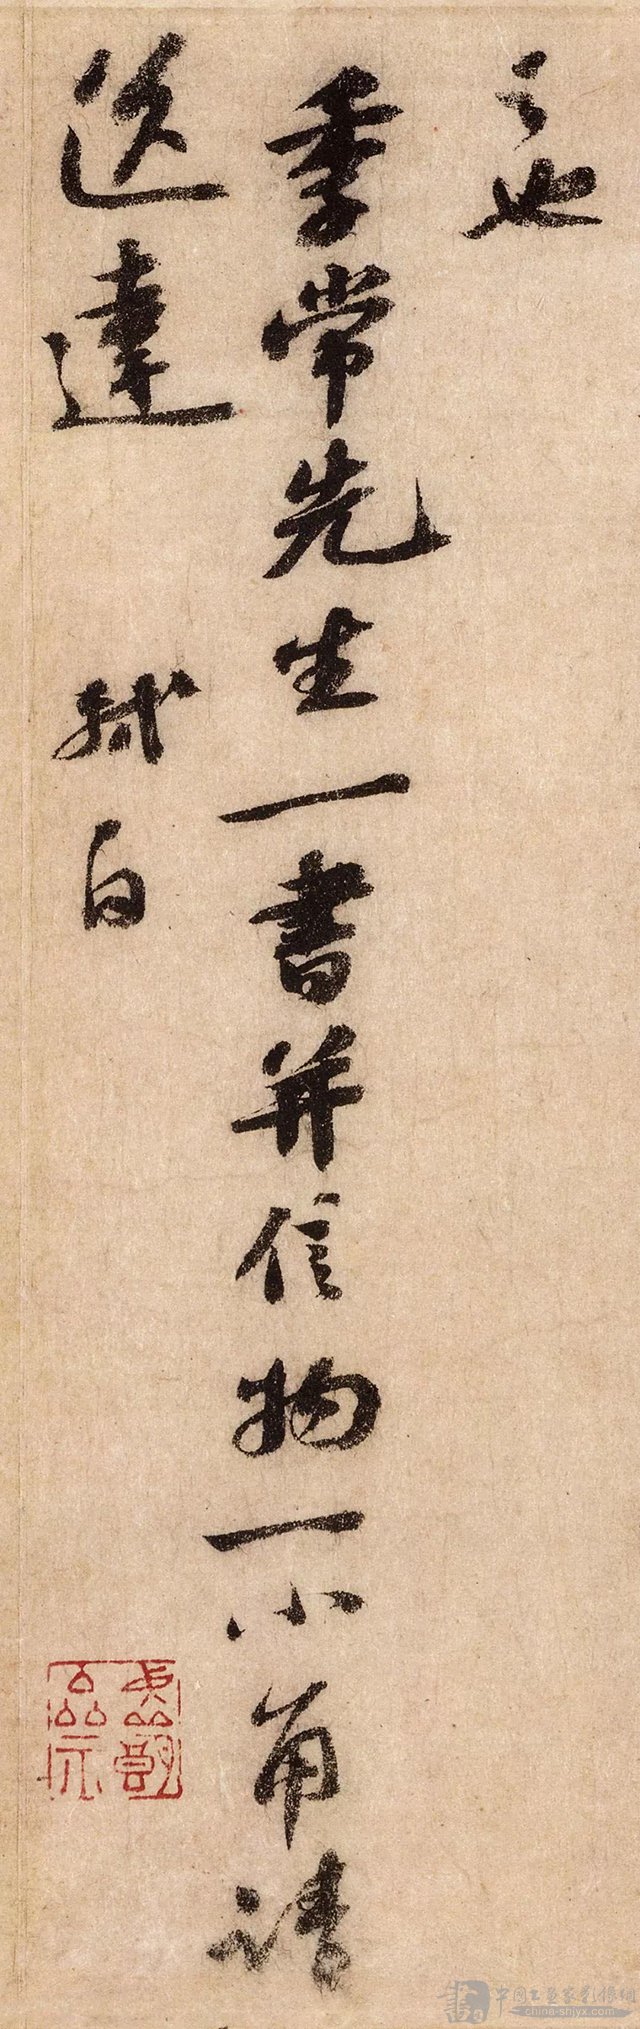 之也
季常先生一書并信物一小角請
送達 軾白
中國書畫家影像網
china-shjyx.com